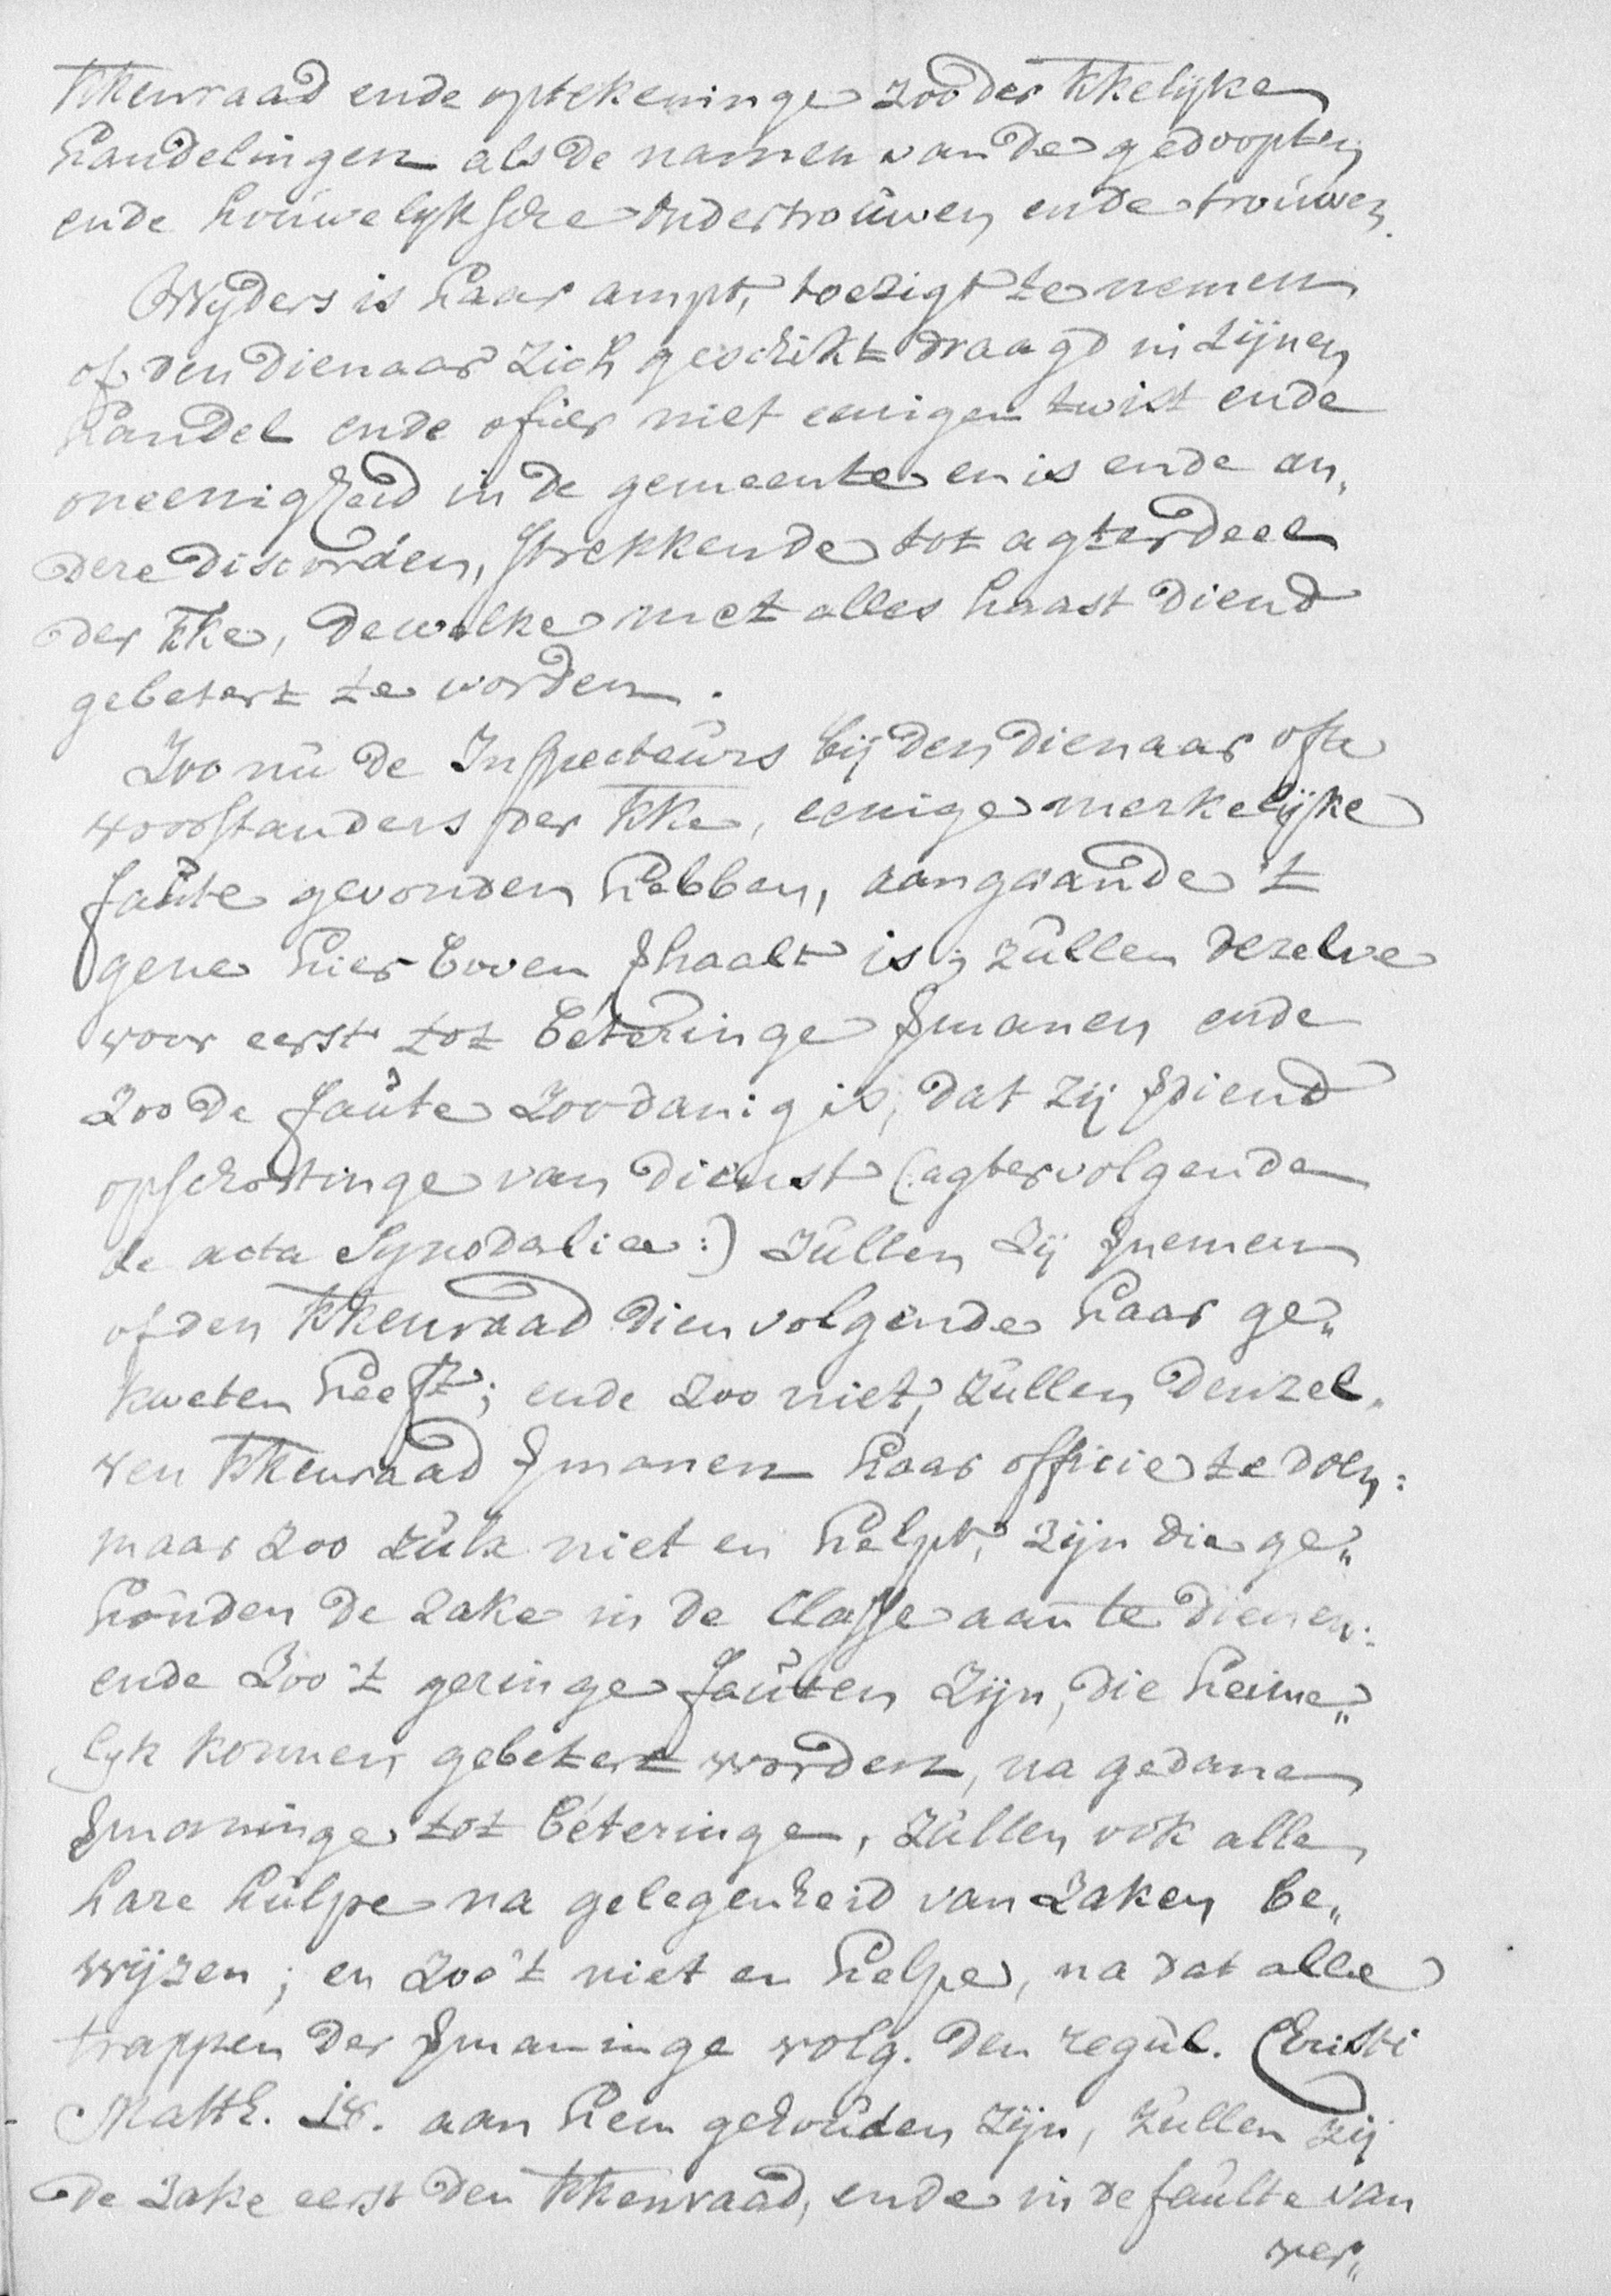 kkenraad ende optekeninge zoo der kkelijke
handelingen als de namen van de gedoopten
ende houwelijksche ondertrouwen ende trouwen.
Wyders is haar ampt, toezigt te nemen
of den dienaar zich geschikt draagd in zijnen
handel ende of hier niet eenigen twist ende
oneenigheid in de gemeente en is ende an„
dere discorden, strekkende tot agterdeel
der kke, dewelke met alles haast diend
gebetert te worden.
Zoo nu de Inspecteurs bij den dienaar ofte
voorstanders der kke, eenige merkelijke
faute gevonden hebben, aangaande 't
gene hier boven  is; zullen dezelve
voor eerst tot beteringe  ende
zoo de faute zoodanig is, dat zij  
opschortinge van dienst (: agtervolgende
de acta Synodalia :) zullen zij 
of den kkenraad dien volgende haar ge„
kweten heeft; ende zoo niet, zullen denzel„
ven kkenraad  haar officie te doen:
maar zoo zulx niet en helpt, zijn die ge„
houden de zake in de Classe aan te dienen:
ende zoo 't geringe fauten zijn, die heime„
lyk konnen gebetert worden, na gedane
 tot beteringe, zullen ook alle
hare hulpe na gelegenheid van zaken be„
wijzen; en zoo 't niet en helpe, na dat alle
trappen der  volg. den regul. Christi
Matth. 18. aan hem gehouden zijn, zullen zij
de zake eerst den kkenraad, ende in defaulte van
ver„